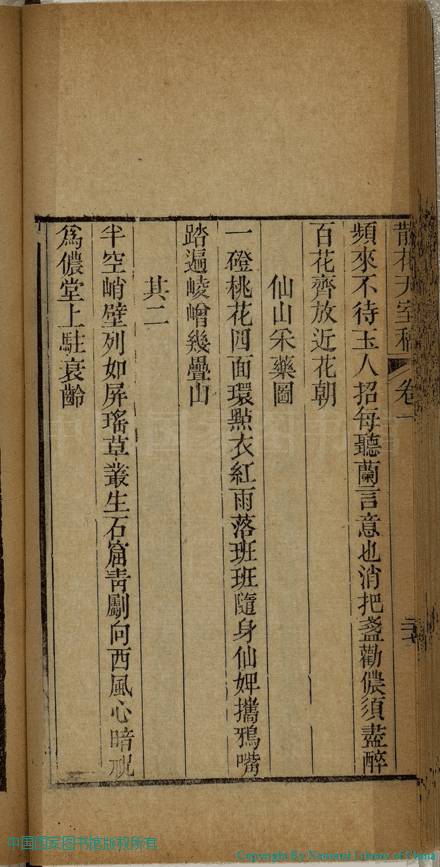 散花天室稿 卷一
頻來不待玉人招每聽蘭言意也消把盞勸儂須盡醉
百花齊放近花朝
仙山采藥圖
一磴桃花四面環點衣紅雨落班班隨身仙婢攜鴉嘴
踏遍崚嶒幾疊山
其二
半空峭壁列如屏瑤草叢生石窟青劚向西風心暗祝
為儂堂上駐衰齡
中国国家图书馆版权所有
Copyright By National Library of China